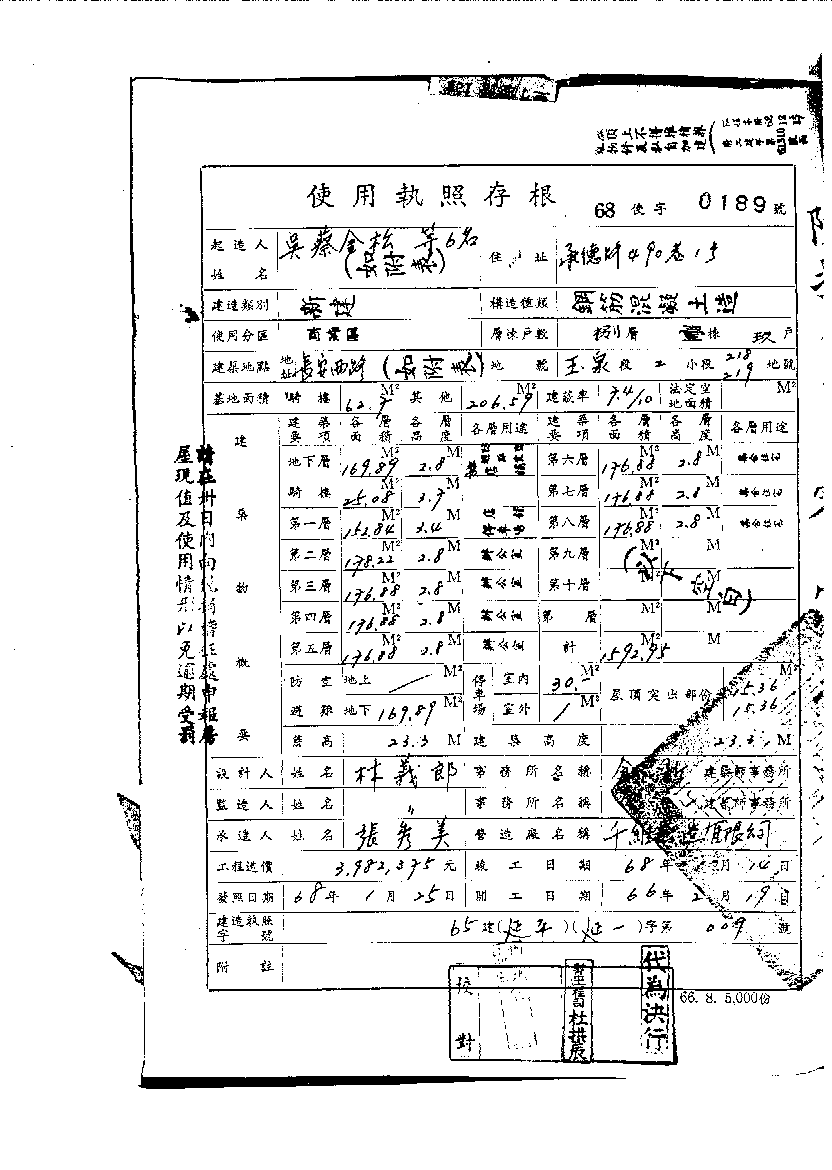 使用執照存根
68 使字 0189 號
起造人姓名 吳蔡金松 等6名 (如附表) 住址 承德路490巷15
建造類別 新建 構造種類 鋼筋混凝土造
使用分區 商業區 層棟戶數 捌層 壹棟 玖戶
建築地點 地址 長安西路 (如附表) 地號 玉泉段 2 小段 218 219 地號
基地面積 騎樓 62.9 M² 其他 206.59 M² 建蔽率 7.4/10 法定空地面積 M²
建築物概要 建築要項 各層面積 各層高度 各層用途 建築要項 各層面積 各層高度 各層用途
地下層 169.89 M² 2.8 M 第六層 176.88 M² 2.8 M 集合住宅
騎樓 25.08 M² 3.7 M 第七層 176.88 M² 2.8 M 集合住宅
第一層 152.84 M² 3.4 M 第八層 176.88 M² 2.8 M 集合住宅
第二層 178.22 M² 2.8 M 辦公室 第九層 M² M
第三層 176.88 M² 2.8 M 辦公室 第十層 M² M
第四層 176.88 M² 2.8 M 辦公室 第 層 M² M
第五層 176.88 M² 2.8 M 計 1592.95 M² M
防空避難 地上 M² 停車場 室內 30. M² 屋頂突出部份 15.36 M²
地下 169.89 M² 室外 M² 15.36 M²
簷高 23.3 M 建築高度 23.3 M
設計人 姓名 林義郎 事務所名稱 建築師事務所
監造人 姓名 〃 事務所名稱 建築師事務所
承造人 姓名 張秀美 營造廠名稱 造有限公司
工程造價 3,982,375 元 竣工日期 68年 月 14日
發照日期 68年 1月 25日 開工日期 66年 2月 19日
建造執照字號 65 建(延平)(延一)字第 009 號
附註
校對
代為決行
66. 8. 5,000份
屋現值及使用情形以免逾期受罰